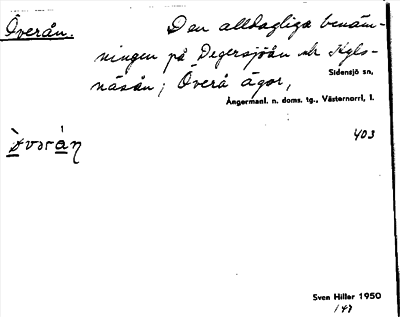 Överån.
Den alldagliga benäm-
ningen på Degersjöån
näsån; Överå ägor,
Sidensjö sn,
Ångermanl. n. doms. tg., Västernorrl. l.
403
Sven Hiller 1950